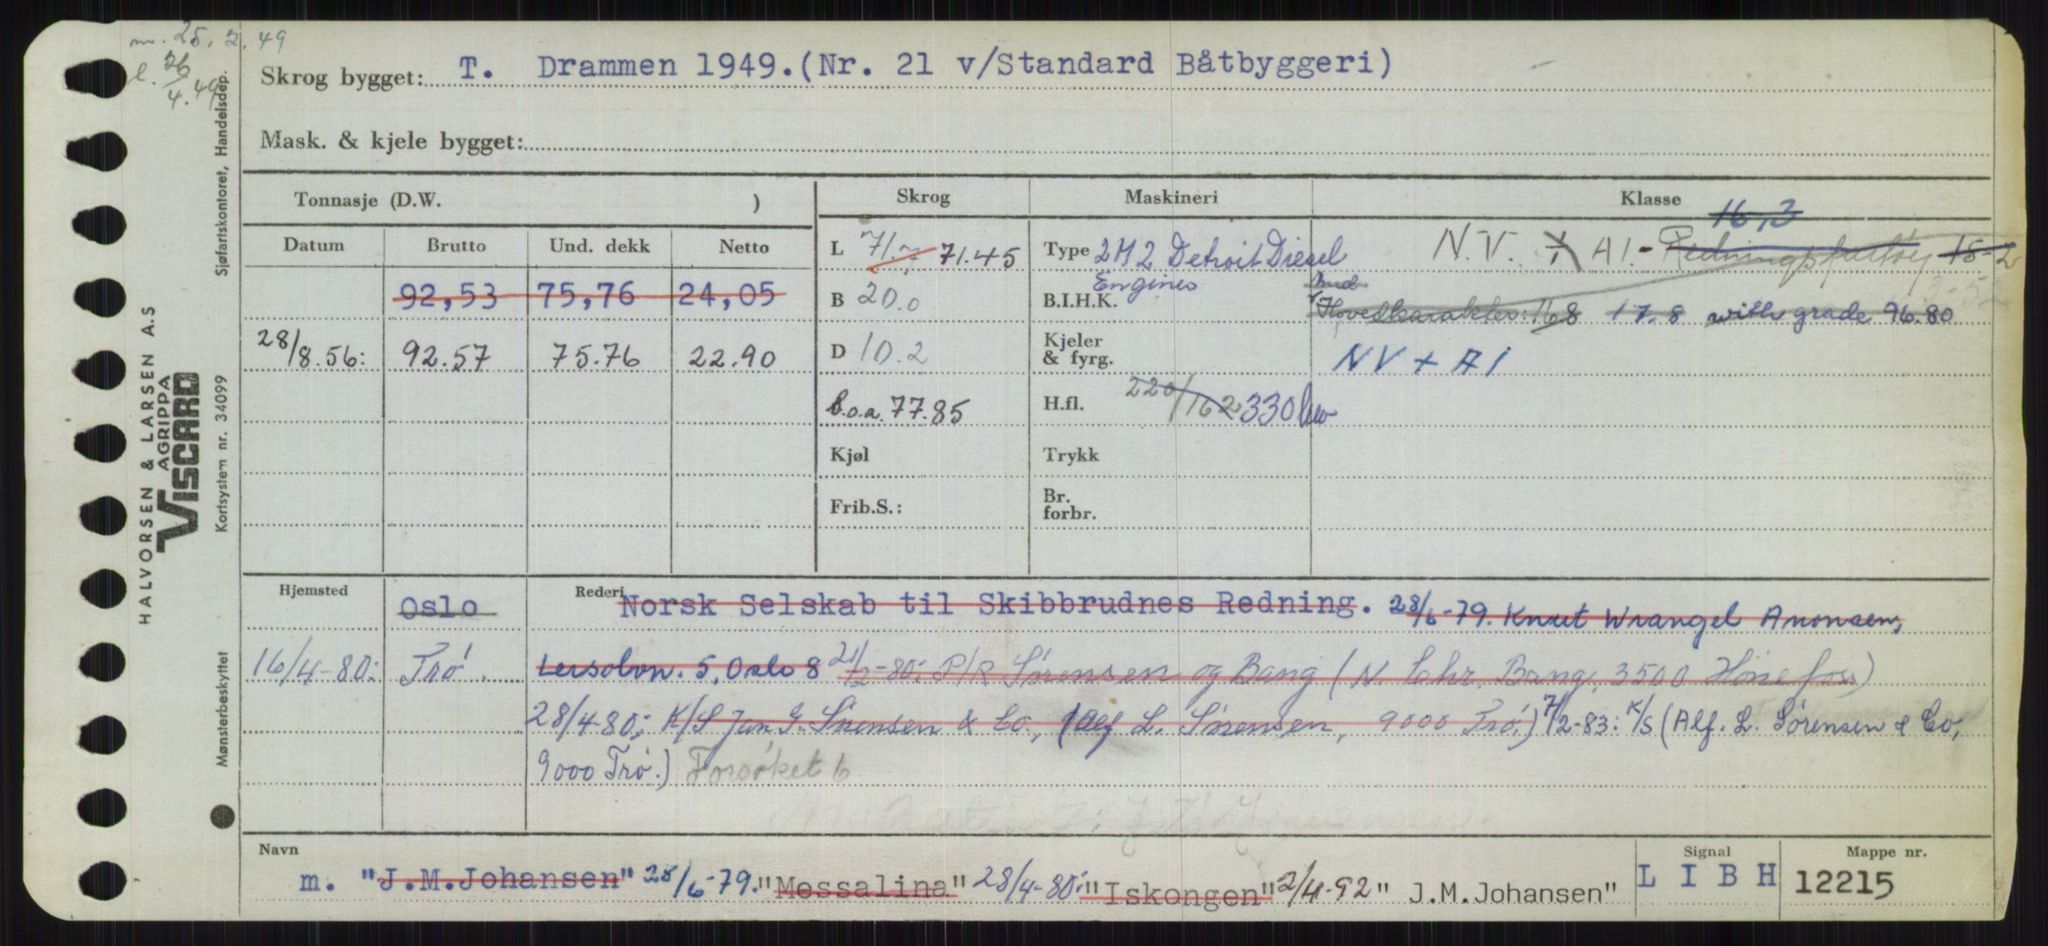 25.2.49
26
4.49
Skrog bygget: T. Drammen 1949.(Nr. 21 v/Standard Båtbyggeri)
Mask. & kjele bygget:
Tonnasje (D.W. )
Skrog
Maskineri
Klasse
16,3
Datum
Brutto
Und. dekk
Netto
L 71.7 71.45
Type 2 M2 Detroit Diesel
Engines
N.V. + A1.- Redningsfartøy 15-2
92,53 75,76 24,05
B 20.0
B.I.H.K.
Hovedkarakter: 168 17.8 with grade 96.80
28/8.56: 92.57 75.76 22.90
D 10.2
Kjeler
& fyrg.
NV + A1
l.o.a. 77.85
H.fl. 220/162 330 bw
Kjøl
Trykk
Frib.S.:
Br.
forbr.
Hjemsted
Oslo
Rederi
Norsk Selskab til Skibbrudnes Redning. 28/6-79. Knut Wrangel Anonsen,
16/4-80: Trö.
Lersolvn. 5, Oslo 8 21/12-80: P/R Sørensen og Bang (N. Chr. Bang, 3500 Hönefoss)
28/4-80; K/S Jan G. Sørensen & Co., (Alf L. Sørensen, 9000 Trö.) 7/2-83: K/S (Alf. L. Sørensen & Co,
9000 Trö.) Forsøket 6
Navn
m. "J.M.Johansen" 28/6-79. "Messalina" 28/4-80: "Iskongen" 2/4-92 " J.M.Johansen"
Signal
L I B H
Mappe nr.
12215
Sjøfartskontoret, Handelsdep.
HALVORSEN & LARSEN A.S
AGRIPPA
VISCARD
Kortsystem nr. 34099
Mønsterbeskyttet